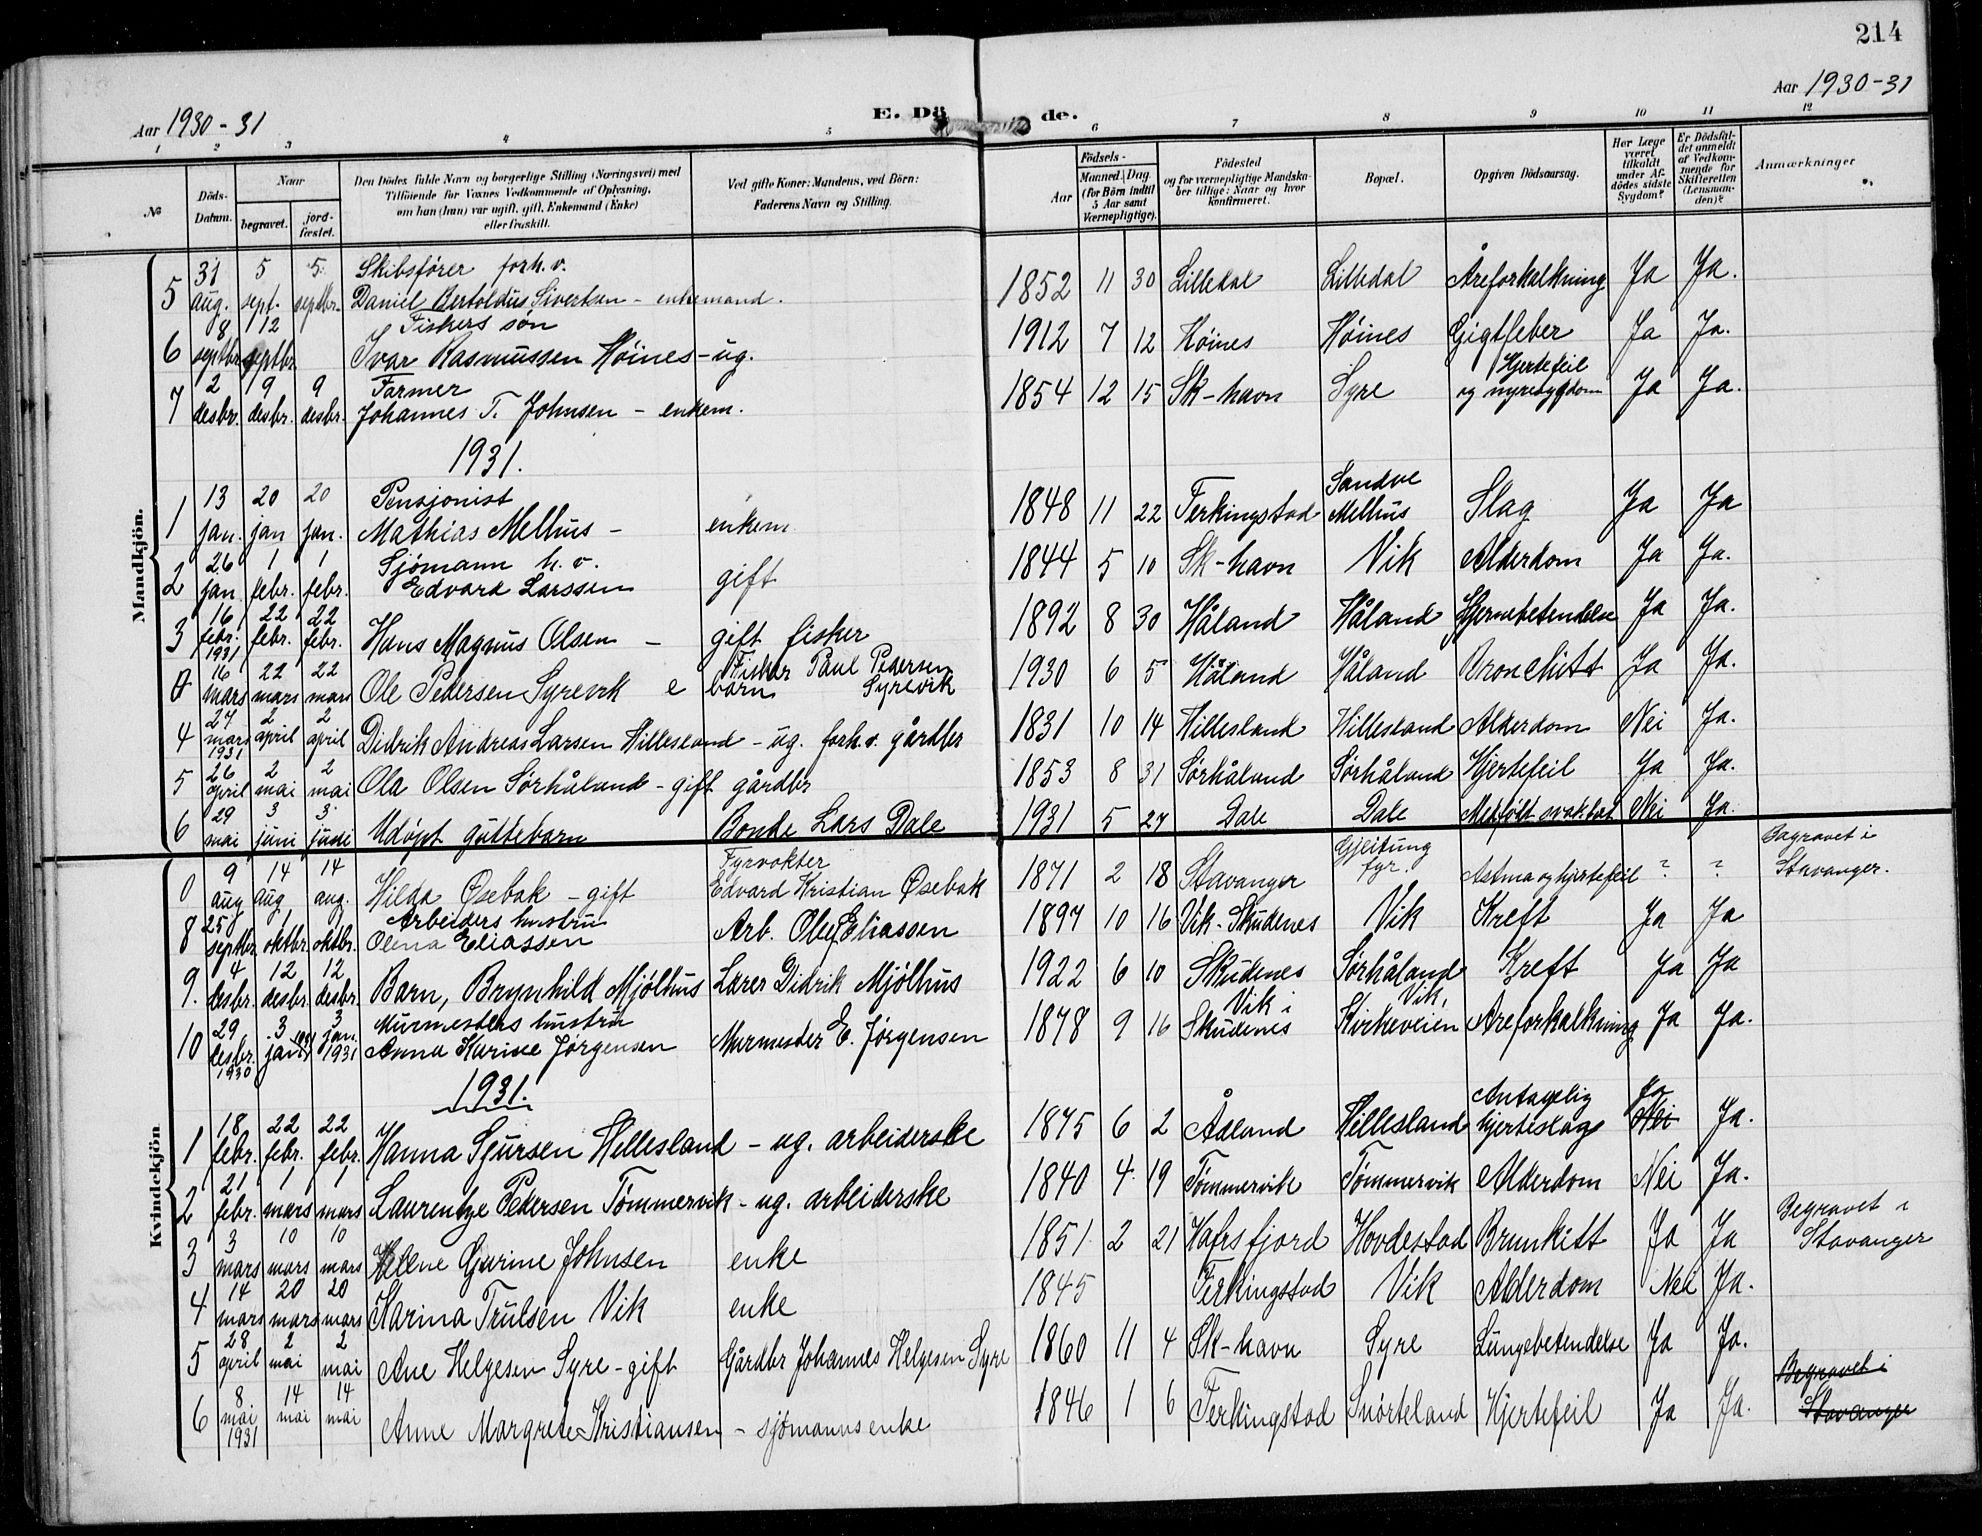 214
Aar 1930-31
E. Dö de.
Aar 1930-31
1 2 3 4 5 6 7 8 9 10 11 12
№ | Döds-Datum. | Naar begravet. | jord-fæstet. | Den Dödes fulde Navn og borgerlige Stilling (Næringsvei) med Tilföiende for Voxnes Vedkommende af Oplysning, om han (hun) var ugift, gift, Enkemand (Enke) eller fraskilt. | Ved gifte Koner: Mandens, ved Börn: Faderens Navn og Stilling. | Aar | Födsels- Maaned. Dag. (for Börn indtil 5 Aar samt Værnepligtige). | Födested og for værnepligtige Mandskaber tillige: Naar og hvor Konfirmeret. | Bopæl. | Opgiven Dödsaarsag. | Har Læge været tilkaldt under Afdödes sidste Sygdom? | Er Dödsfaldet anmeldt af Vedkommende for Skifteretten (Lensmanden)? | Anmærkninger
Mandkjön.
5 | 31 aug. | 5 sept. | 5 septbr. | Skibsfører forh.v. Daniel Bertoldus Sivertsen - enkemand. | 1852 | 11 | 30 | Lilledal | Lilledal | Åreforkalkning | Ja | Ja.
6 | 8 septbr. | 12 septbr. | Fiskers søn Ivar Rasmussen Høines - ug. | 1912 | 7 | 12 | Høines | Høines | Gigtfeber | Ja | Ja.
7 | 2 desbr. | 9 desbr. | 9 desbr. | Farmer Johannes T. Johnsen - enkem. | 1854 | 12 | 15 | Sk-havn | Syre | Hjertefeil og nyresygdom | Ja | Ja.
1931.
1 | 13 jan. | 20 jan | 20 jan. | Pensjonist Mathias Melhus - | enkem. | 1848 | 11 | 22 | Ferkingstad | Sandve Melhus | Slag | Ja | Ja
2 | 26 jan. | 1 febr. | 1 febr. | Sjømann h.v. Edvard Larssen | gift | 1844 | 5 | 10 | Sk-havn | Vik | Alderdom | Ja | Ja.
3 | 16 febr. 1931 | 22 febr. | 22 febr. | Hans Magnus Olsen - | gift fisker | 1892 | 8 | 30 | Håland | Håland | Hjernebetendelse | Ja | Ja.
0 | 16 mars | 22 mars | 22 mars | Ole Pedersen Syrevik e | barn Fisker Paul Pedersen Syrevik | 1930 | 6 | 5 | Håland | Håland | Bronchitt | Ja | Ja.
4 | 27 mars 1931 | 2 april | 2 april | Didrik Andreas Larsen Hillesland - ug. forh.v. gårdbr | 1831 | 10 | 14 | Hillesland | Hillesland | Alderdom | Nei | Ja.
5 | 26 april | 2 mai | 2 mai | Ola Olsen Sørhåland - gift gårdbr | 1853 | 8 | 31 | Sørhåland | Sørhåland | Hjertefeil | Ja | Ja.
6 | 29 mai | 3 juni | 3 juni | Udøpt guttebarn | Bonde Lars Dale | 1931 | 5 | 27 | Dale | Dale | Medfødt svakhet | Nei | Ja.
Kvindekjön
0 | 9 aug | 14 aug | 14 aug. | Hilda Øsebak - gift | Fyrvokter Edvard Kristian Øsebak | 1871 | 2 | 18 | Stavanger | Gjeitung fyr. | Astma og hjertefeil | ? | ? | Begravet i Stavanger.
8 | 25 septbr. | 1 oktbr. | 1 oktbr. | Arbeiders hustru Olena Eliassen | Arb. Olef Eliassen | 1897 | 10 | 16 | Vik-Skudenes | Vik | Kreft | Ja | Ja
9. | 4 desbr. | 12 desbr. | 12 desbr. | Barn, Brynhild Mjølhus | Lærer Didrik Mjølhus | 1922 | 6 | 10 | Skudenes | Sørhåland | Kreft | Ja | Ja
10 | 29 desbr. 1930 | 3 jan. 1931 | 3 jan. 1931 | Murmesters hustru Anna Karine Jørgensen | Murmester E. Jørgensen | 1878 | 9 | 16 | Vik i Skudenes | Vik, Kirkeveien | Åreforkalkning | Ja | Ja.
1931.
1 | 18 febr. | 22 febr. | 22 febr. | Hanna Sjursen Hillesland - ug. arbeiderske | 1875 | 6 | 2 | Ådland | Hillesland | Antagelig hjerteslag | Ja Nei | Ja.
2 | 21 febr. | 1 mars | 1 mars | Laurentze Pedersen Tømmervik - ug. arbeiderske | 1840 | 4 | 19 | Tømmervik | Tømmervik | Alderdom | Nei | Ja.
3 | 3 mars | 10 mars | 10 mars | Helene Gurine Johnsen | enke | 1851 | 2 | 21 | Hafrsfjord | Hovdestad | Brunkitt | Ja | Ja | Begravet i Stavanger
4 | 14 mars | 20 mars | 20 mars | Karina Trulsen Vik | enke | 1845 | Ferkingstad | Vik | Alderdom | Nei | Ja.
5 | 28 april | 2 mai | 2 mai | Ane Helgesen Syre - gift | Gårdbr Johannes Helgesen Syre | 1860 | 11 | 4 | Sk-havn | Syre | Lungebetendelse | Ja | Ja.
6 | 8 mai 1931 | 14 mai | 14 mai | Anne Margrete Kristiansen - sjømanns enke | 1846 | 1 | 6 | Ferkingstad | Snørteland | Hjertefeil | Ja | Ja. | Begravet i Stavanger